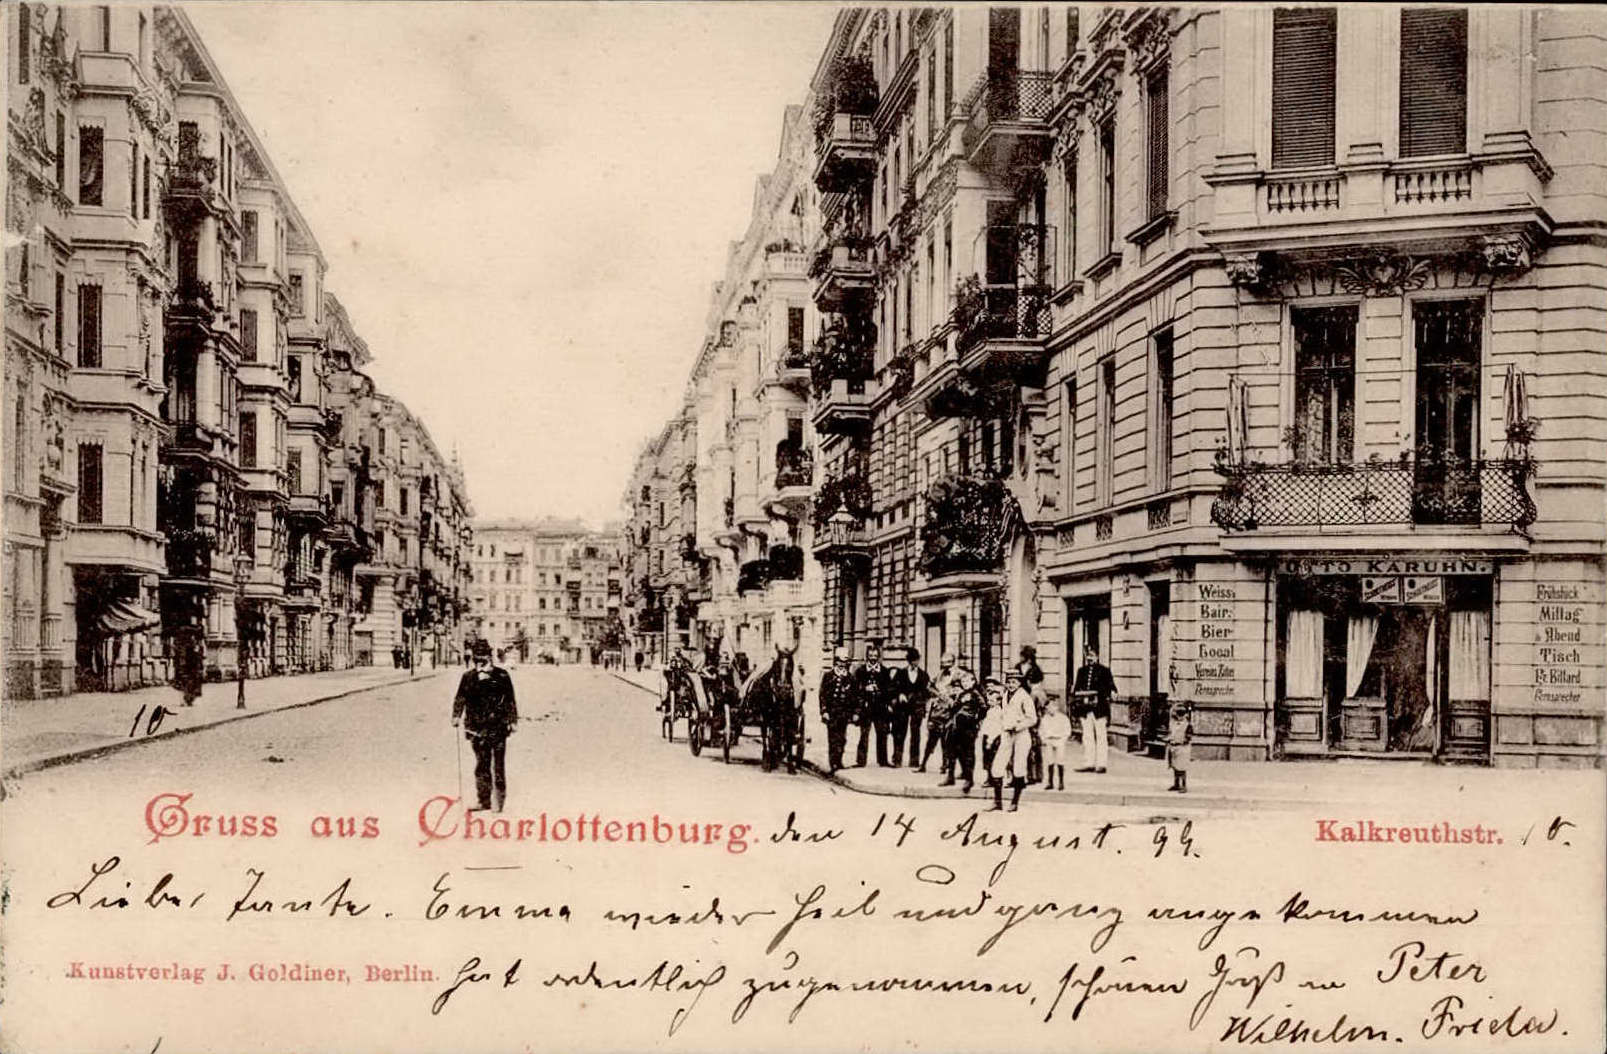 OTTO KARUHN.
Weiss-
Bair.
Bier-
Local
Vereins Zimmer
Fernsprecher
Frühstück
Mittag
& Abend
Tisch
Fernsprecher
10
Gruss aus Charlottenburg. den 14 August. 99.
Kalkreuthstr. 10.
Liebe Tante. Emma wieder heil und ganz angekommen
Kunstverlag J. Goldiner, Berlin.
hat ordentlich zugenommen, schönen Gruß an Peter
Wilhelm. Frieda.